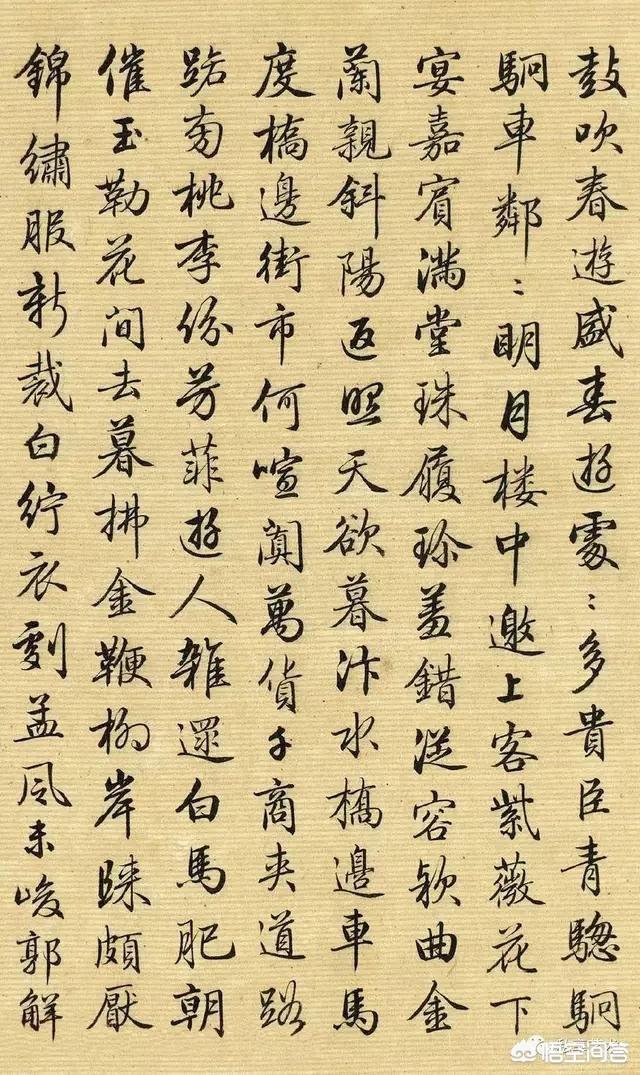 鼓吹春遊盛春遊處〻多貴臣青驄駉
駉車鄰〻明月楼中邀上客紫薇花下
宴嘉賓滿堂珠履珍羞錯從容款曲金
蘭親斜陽返照天欲暮汴水橋邊車馬
度橋邊街市何喧闐萬貨千商夹道路
路旁桃李份芳菲遊人雜遝白馬肥朝
催玉勒花间去暮拂金鞭柳岸歸頗厭
錦繡服新裁白紵衣劇孟風未峻郭解
悟空问答